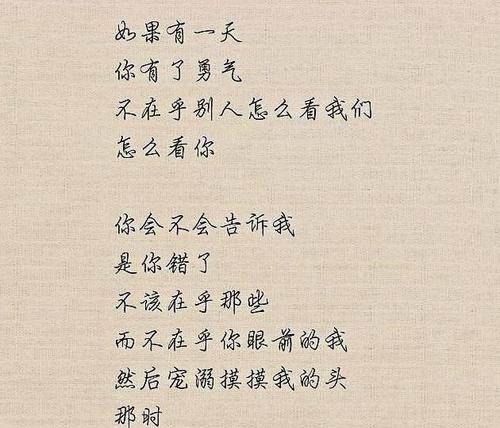 如果有一天
你有了勇气
不在乎别人怎么看我们
怎么看你
你会不会告诉我
是你错了
不该在乎那些
而不在乎你眼前的我
然后宠溺摸摸我的头
那时